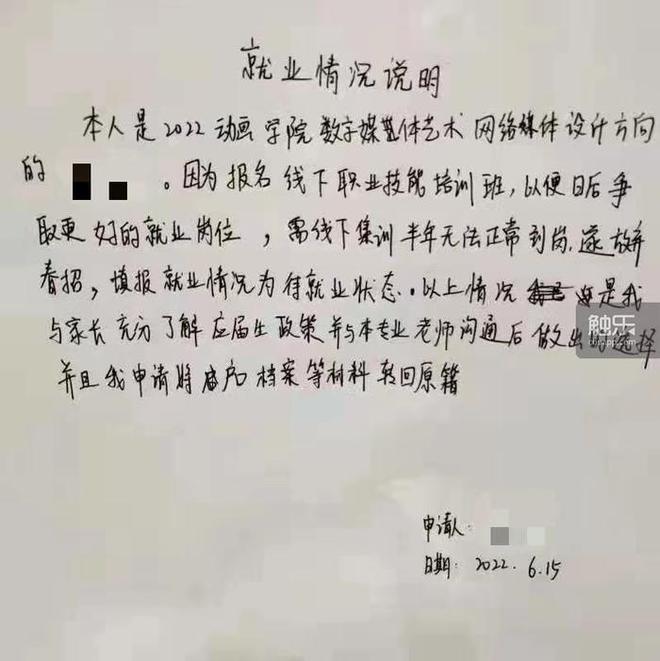 就业情况说明
本人是2022动画学院数字媒体艺术网络媒体设计方向
的 。因为报名线下职业技能培训班，以便日后争
取更好的就业岗位，需线下集训半年无法正常到岗，遂放弃
春招，填报就业情况为待就业状态。以上情况 是我
与家长充分了解应届生政策并与本专业老师沟通后做出的选择
并且我申请将 户档案等材料转回原籍
触乐
申请人：
日期：2022.6.15